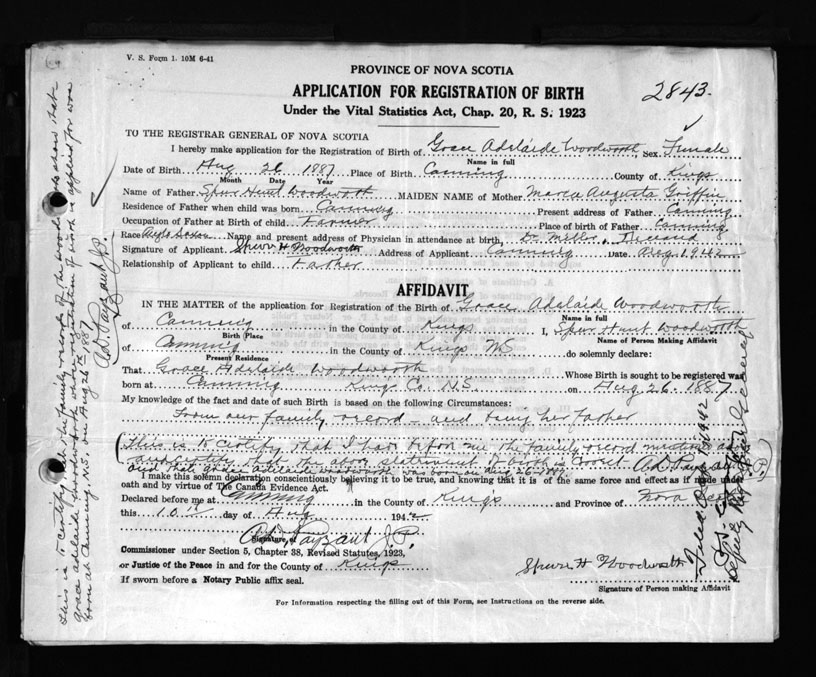 V. S. Form 1. 10M 6-41
PROVINCE OF NOVA SCOTIA
APPLICATION FOR REGISTRATION OF BIRTH
2843.
Under the Vital Statistics Act, Chap. 20, R. S. 1923
TO THE REGISTRAR GENERAL OF NOVA SCOTIA
I hereby make application for the Registration of Birth of Grace Adelaide Woodworth, Sex Female
Name in full
Date of Birth Aug 26 1887 Place of Birth Canning County of Kings
Month Date Year
Name of Father Spurr Hunt Woodworth MAIDEN NAME of Mother Augusta Griffin
Residence of Father when child was born Canning Present address of Father Canning
Occupation of Father at Birth of child Farmer Place of birth of Father Canning
Race Anglo Saxon Name and present address of Physician in attendance at birth, Dr Miller, Deceased
Signature of Applicant Spurr H Woodworth Address of Applicant Canning Date Aug 1942
Relationship of Applicant to child Father
AFFIDAVIT
IN THE MATTER of the application for Registration of the Birth of Grace Adelaide Woodworth
Name in full
of Canning in the County of Kings I, Spurr Hunt Woodworth
Birth Place Name of Person Making Affidavit
of Canning in the County of Kings NS do solemnly declare:
Present Residence
That Grace Adelaide Woodworth Whose Birth is sought to be registered was
born at Canning Kings Co. N.S. on Aug 26. 1887
My knowledge of the fact and date of such Birth is based on the following Circumstances:
From our family record - and being her father
This is to certify that I have before me the family record
and certify that the above of birth is correct A.D. Payzant
and that grace adelaide woodworth was born on aug 26 1887
I make this solemn declaration conscientiously believing it to be true, and knowing that it is of the same force and effect as if made under
oath and by virtue of The Canada Evidence Act.
Declared before me at Canning in the County of Kings and Province of Nova Scotia
this 10th day of Aug 1942
A.D. Payzant J.P.
Signature of
Commissioner under Section 5, Chapter 38, Revised Statutes, 1923,
or Justice of the Peace in and for the County of Kings
Spurr H Woodworth
If sworn before a Notary Public affix seal.
Signature of Person making Affidavit
For Information respecting the filling out of this Form, see Instructions on the reverse side.
This is to certify that the family records of the show that
grace adelaide Woodworth whose registration of birth is applied for was
born at Canning N.S. on Aug 26th 1887
A.D. Payzant J.P.
Filed 1942
Deputy Registrar General